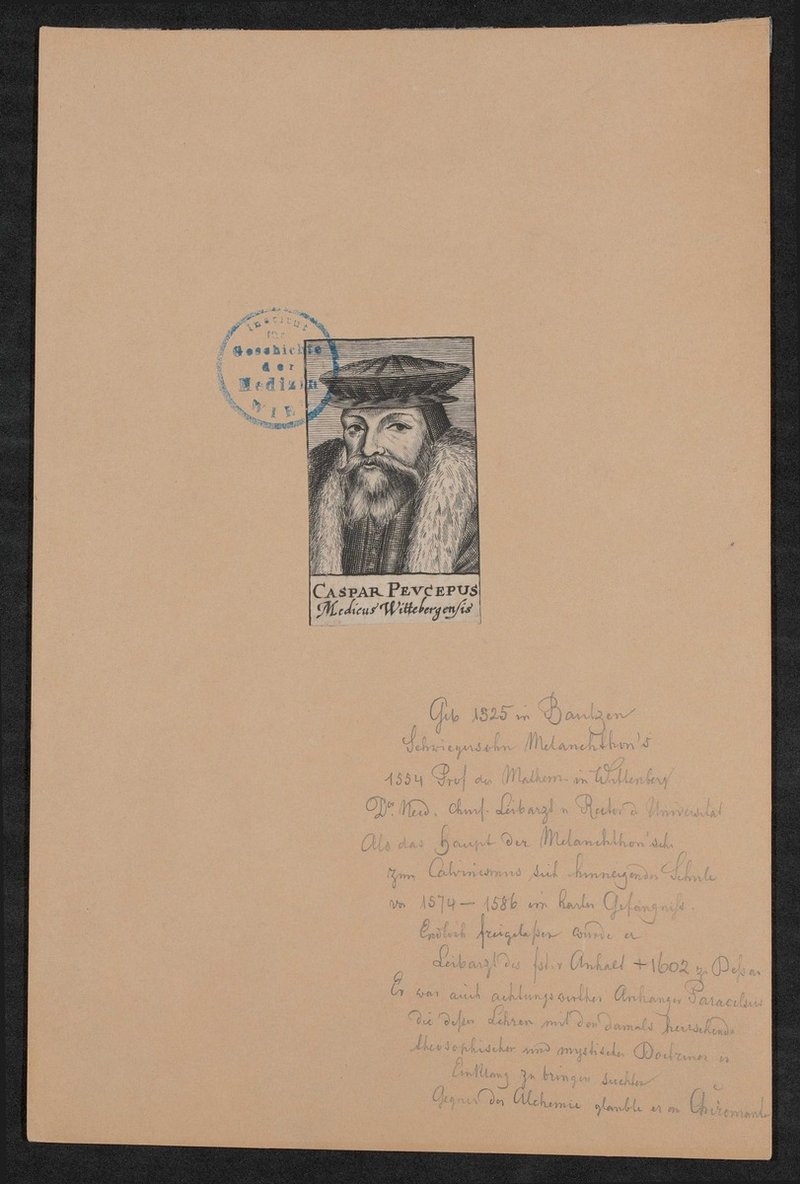 Institut
für
Geschichte
der
Medizin
WIEN
CASPAR PEVCERUS
Medicus Wittebergensis
Geb 1525 in Bautzen
Schwiegersohn Melanchthon's
1554 Prof der Mathem in Wittenberg
Dr. Med. Churf. Leibarzt u Rector d Universität
Als das Haupt der Melanchthon'sch
zum Calvinismus sich hinneigenden Schule
von 1574 – 1586 im harten Gefängniss.
Endlich freigelassen wurde er
Leibarzt des Anhalt + 1602 zu Dessau
Er war auch achtungswerther Anhänger Paracelsus
die dessen Lehren mit den damals herrschenden
theosophischen und mystischen Doctrinen in
Einklang zu bringen suchten
Gegner der Alchemie glaubte er an Chiromantie